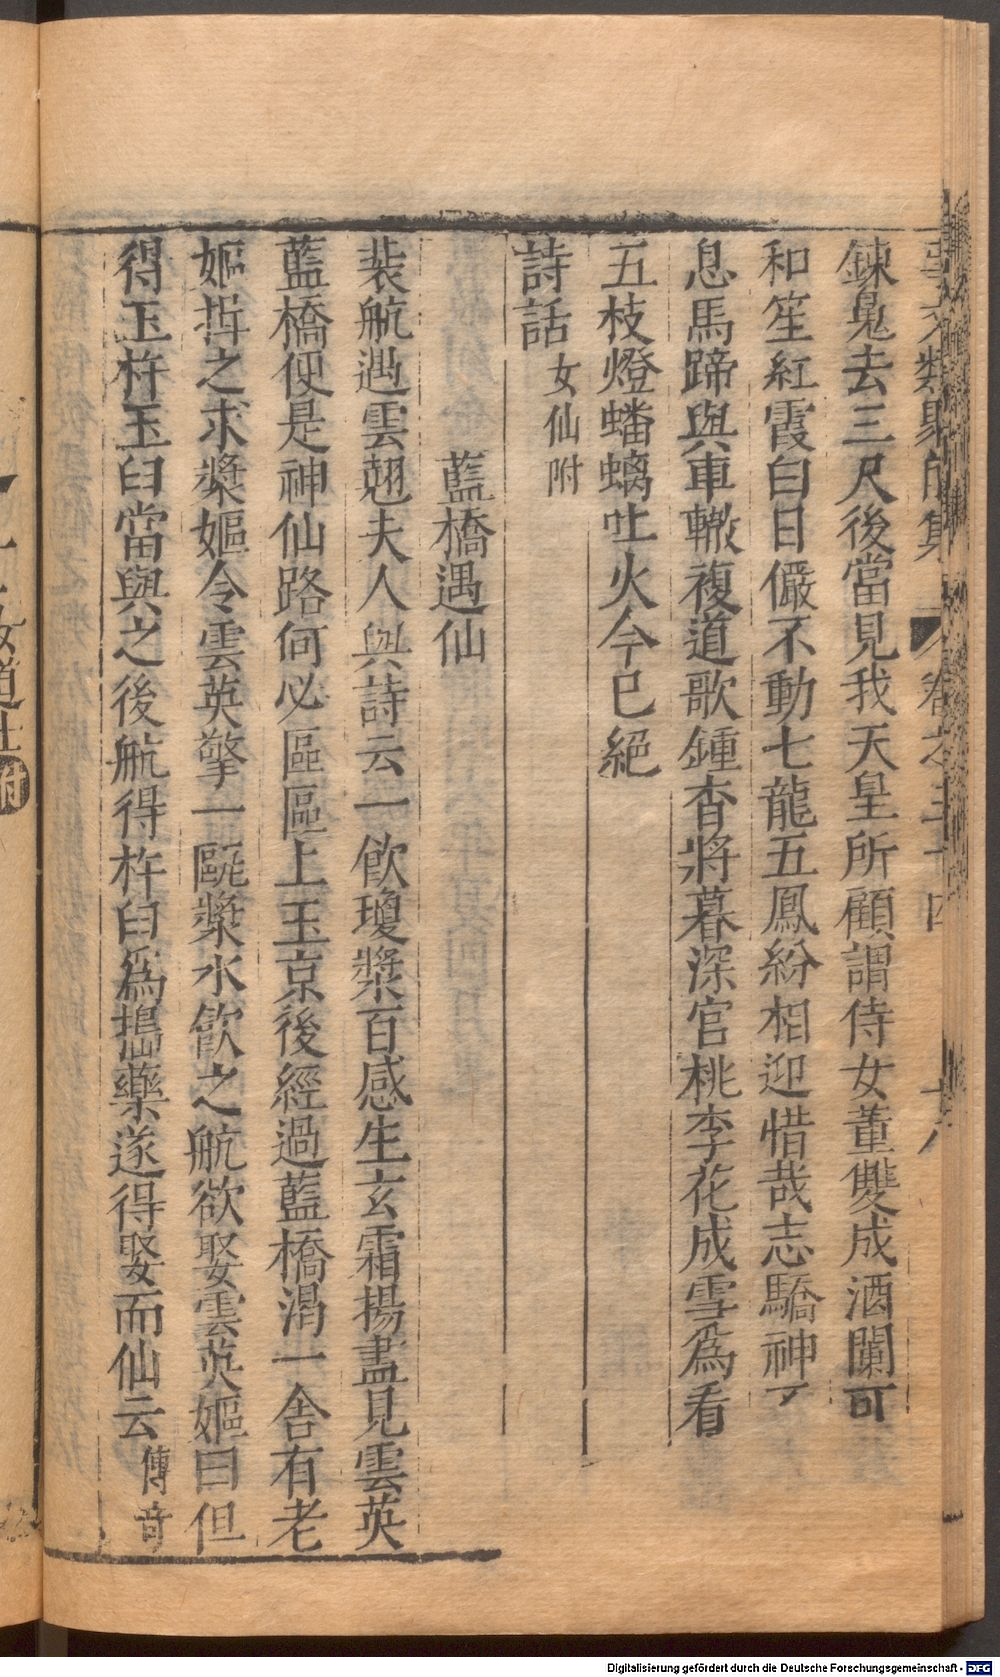 事文類聚前集 卷之三十四 十八
鍊䰟去三尺後當見我天皇所顧謂侍女董雙成酒闌可
和笙紅霞白日儼不動七龍五鳳紛相迎惜哉志驕神不
息馬蹄與車轍複道歌鍾杳將暮深宮桃李花成雪為看
五枝燈蟠螭吐火今已絕
詩話 女仙附
藍橋遇仙
裴航遇雲翹夫人與詩云一飲瓊漿百感生玄霜搗盡見雲英
藍橋便是神仙路何必區區上玉京後經過藍橋渴一舍有老
嫗揖之求漿嫗令雲英擎一甌漿水飲之航欲娶雲英嫗曰但
得玉杵玉臼當與之後航得杵臼為搗藥遂得娶而仙云 傳奇
女道士附
Digitalisierung gefördert durch die Deutsche Forschungsgemeinschaft - DFG